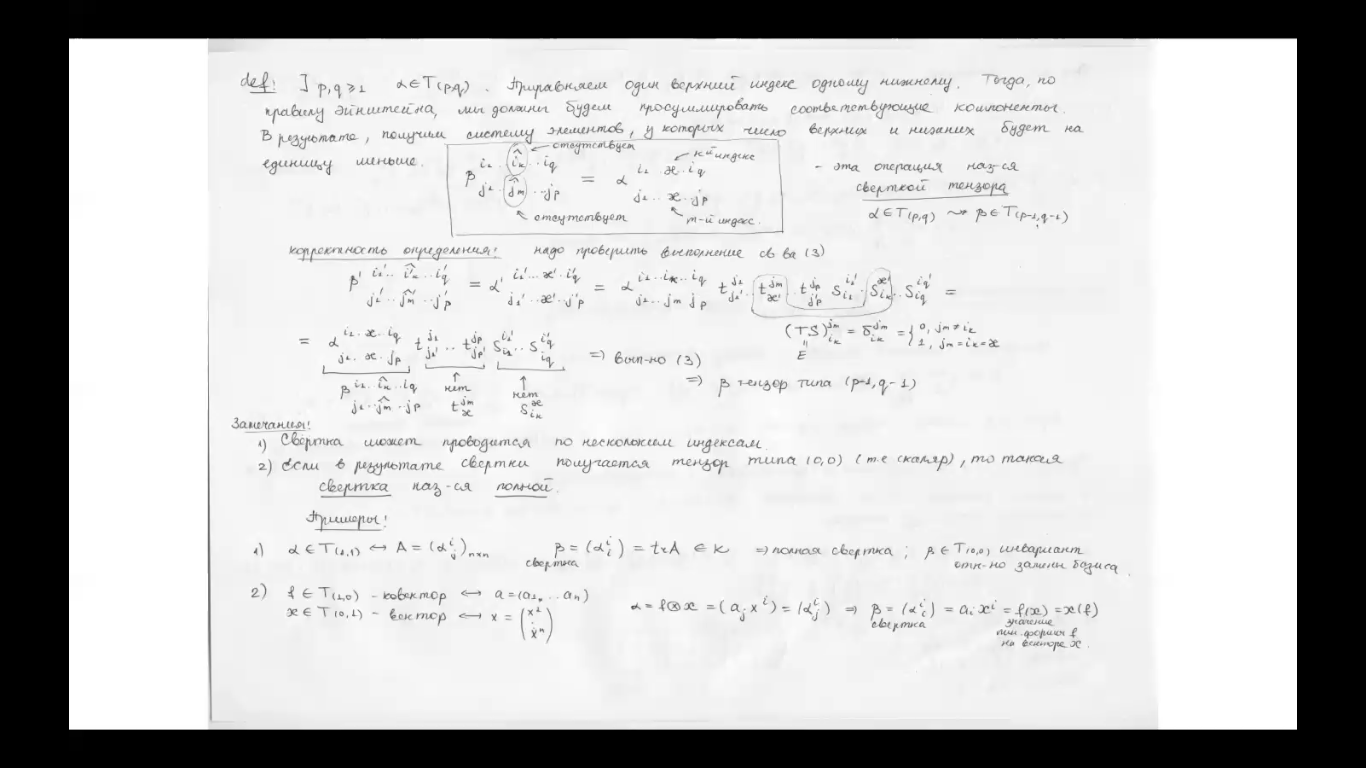 def: ] p,q ⩾ 1 α ∈ T(p,q). Приравняем один верхний индекс одному нижнему. Тогда, по
правилу Эйнштейна, мы должны будем просуммировать соответствующие компоненты.
В результате, получим систему элементов, у которых число верхних и нижних будет на
единицу меньше.
β^{i₁..î_k..i_q}_{j₁..ĵ_m..j_p} = α^{i₁..æ..i_q}_{j₁..æ..j_p}
отсутствует
к-й индекс
отсутствует
m-й индекс.
- эта операция наз-ся
сверткой тензора
α ∈ T(p,q) ⇝ β ∈ T(p-1,q-1)
корректность определения! надо проверить выполнение св-ва (3)
β'^{i₁'..î_k'..i_q'}_{j₁'..ĵ_m'..j_p'} = α'^{i₁'..æ'..i_q'}_{j₁'..æ'..j_p'} = α^{i₁..i_k..i_q}_{j₁..j_m j_p} t^{j₁}_{j₁'} .. t^{j_m}_{æ'} .. t^{j_p}_{j_p'} S^{i₁'}_{i₁} .. S^{æ'}_{i_k} .. S^{i_q'}_{i_q} =
(TS)^{j_m}_{i_k} = δ^{j_m}_{i_k} = { 0, j_m ≠ i_k
1, j_m = i_k = æ
=
E
= α^{i₁..æ..i_q}_{j₁..æ..j_p} t^{j₁}_{j₁'} .. t^{j_p}_{j_p'} S^{i₁'}_{i₁} .. S^{i_q'}_{i_q} => вып-но (3)
β^{i₁..î_k..i_q}_{j₁..ĵ_m..j_p} нет t^{j_m}_æ нет S^æ_{i_k}
=> β тензор типа (p-1, q-1)
Замечания!
1) Свертка может проводится по нескольким индексам
2) Если в результате свертки получается тензор типа (0,0) (т.е скаляр), то такая
свертка наз-ся полной.
Примеры!
1) α ∈ T(1,1) ↔ A = (α^i_j)_{n×n} β = (α^i_i) = tr A ∈ K => полная свертка; β ∈ T(0,0) инвариант
свертка
отн-но замены базиса.
2) f ∈ T(1,0) - ковектор ↔ a = (a₁, .. aₙ)
x ∈ T(0,1) - вектор ↔ x = (x¹ ⋮ xⁿ)
α = f⊗x = (a_j x^i) = (α^i_j) => β = (α^i_i) = a_i x^i = f(x) = x(f)
свертка
значение
лин. формы f
на векторе x.